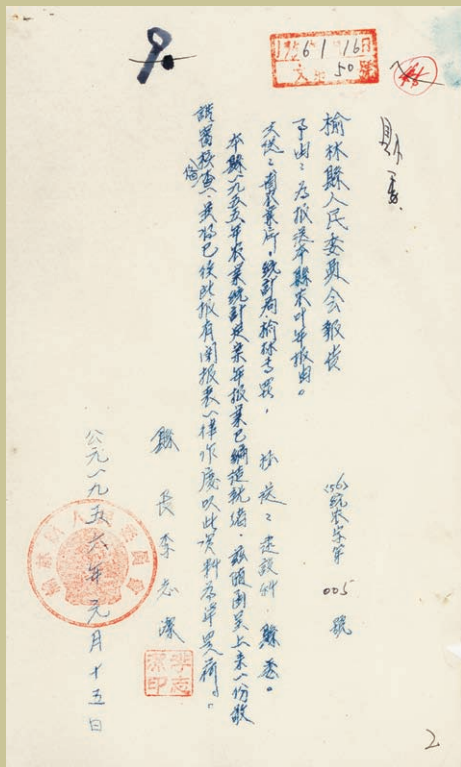 1956 1 16日
50
榆林縣人民委員会報告
(56)統农字第 005 號
事由：为报送本縣农业年报由。
主送：省农業厅，統計局，榆林专署， 抄送：建設科 縣委。
本縣一九五五年农業統計定案年报業已編造就緒，兹隨函呈上来一份敬
請審核备查，并將已往此报有関报表一律作廢以此資料为準是荷。
縣長李志潔
李志潔印
公元一九五六年元月十五日
2